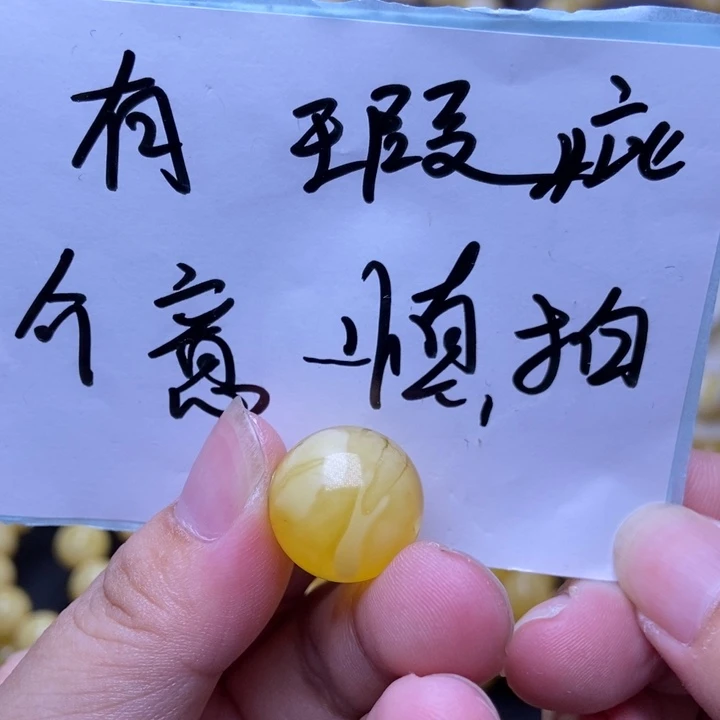 有 瑕疵
介意慎拍